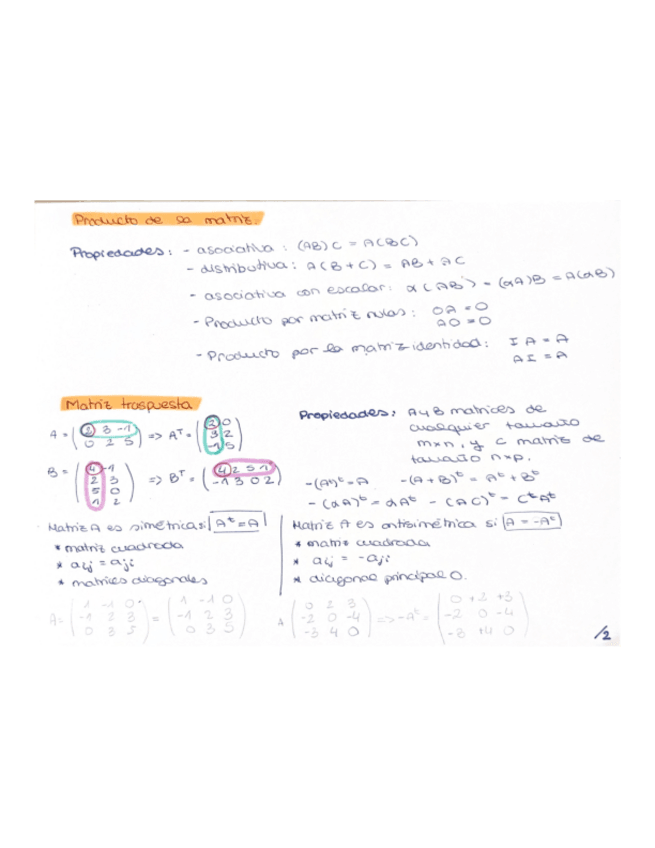 Producto de la matriz.
Propiedades: - asociativa : (AB)C = A(BC)
- distributiva: A(B+C) = AB + AC
- asociativa con escalar: α(AB) = (αA)B = A(αB)
- Producto por matriz nulas: OA = O
AO = O
- Producto por la matriz identidad: IA = A
AI = A
Matriz traspuesta
A = ( 2 3 -1
0 2 5 ) => Aᵀ = ( 2 0
3 2
-1 5 )
B = ( 4 -1
2 3
5 0
1 2 ) => Bᵀ = ( 4 2 5 1
-1 3 0 2 )
Propiedades: A y B matrices de
cualquier tamaño
m×n, y C matriz de
tamaño n×p.
-(Aᵗ)ᵗ=A -(A+B)ᵗ = Aᵗ+Bᵗ
-(αA)ᵗ = αAᵗ -(AC)ᵗ = CᵗAᵗ
Matriz A es simétrica si: Aᵗ=A
* matriz cuadrada
* aij = aji
* matrices diagonales
A = ( 1 -1 0
-1 2 3
0 3 5 ) = ( 1 -1 0
-1 2 3
0 3 5 )
Matriz A es antisimétrica si A = -Aᵗ
* matriz cuadrada
* aij = -aji
* diagonal principal 0.
A ( 0 2 3
-2 0 -4
-3 4 0 ) => -Aᵗ = ( 0 +2 +3
-2 0 -4
-3 +4 0 )
/2